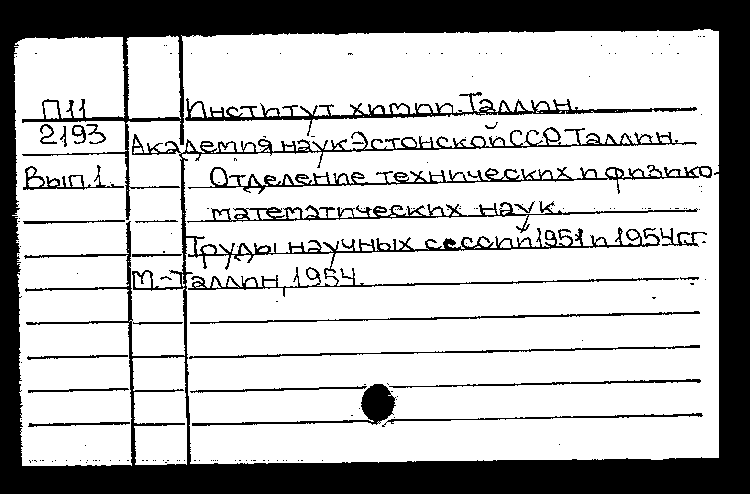 П11 Институт химии. Таллин.
2193 Академия наук Эстонской ССР. Таллин.
Вып.1. Отделение технических и физико-
математических наук.
Труды научных сессий 1951 и 1954 гг.
М.-Таллин, 1954.